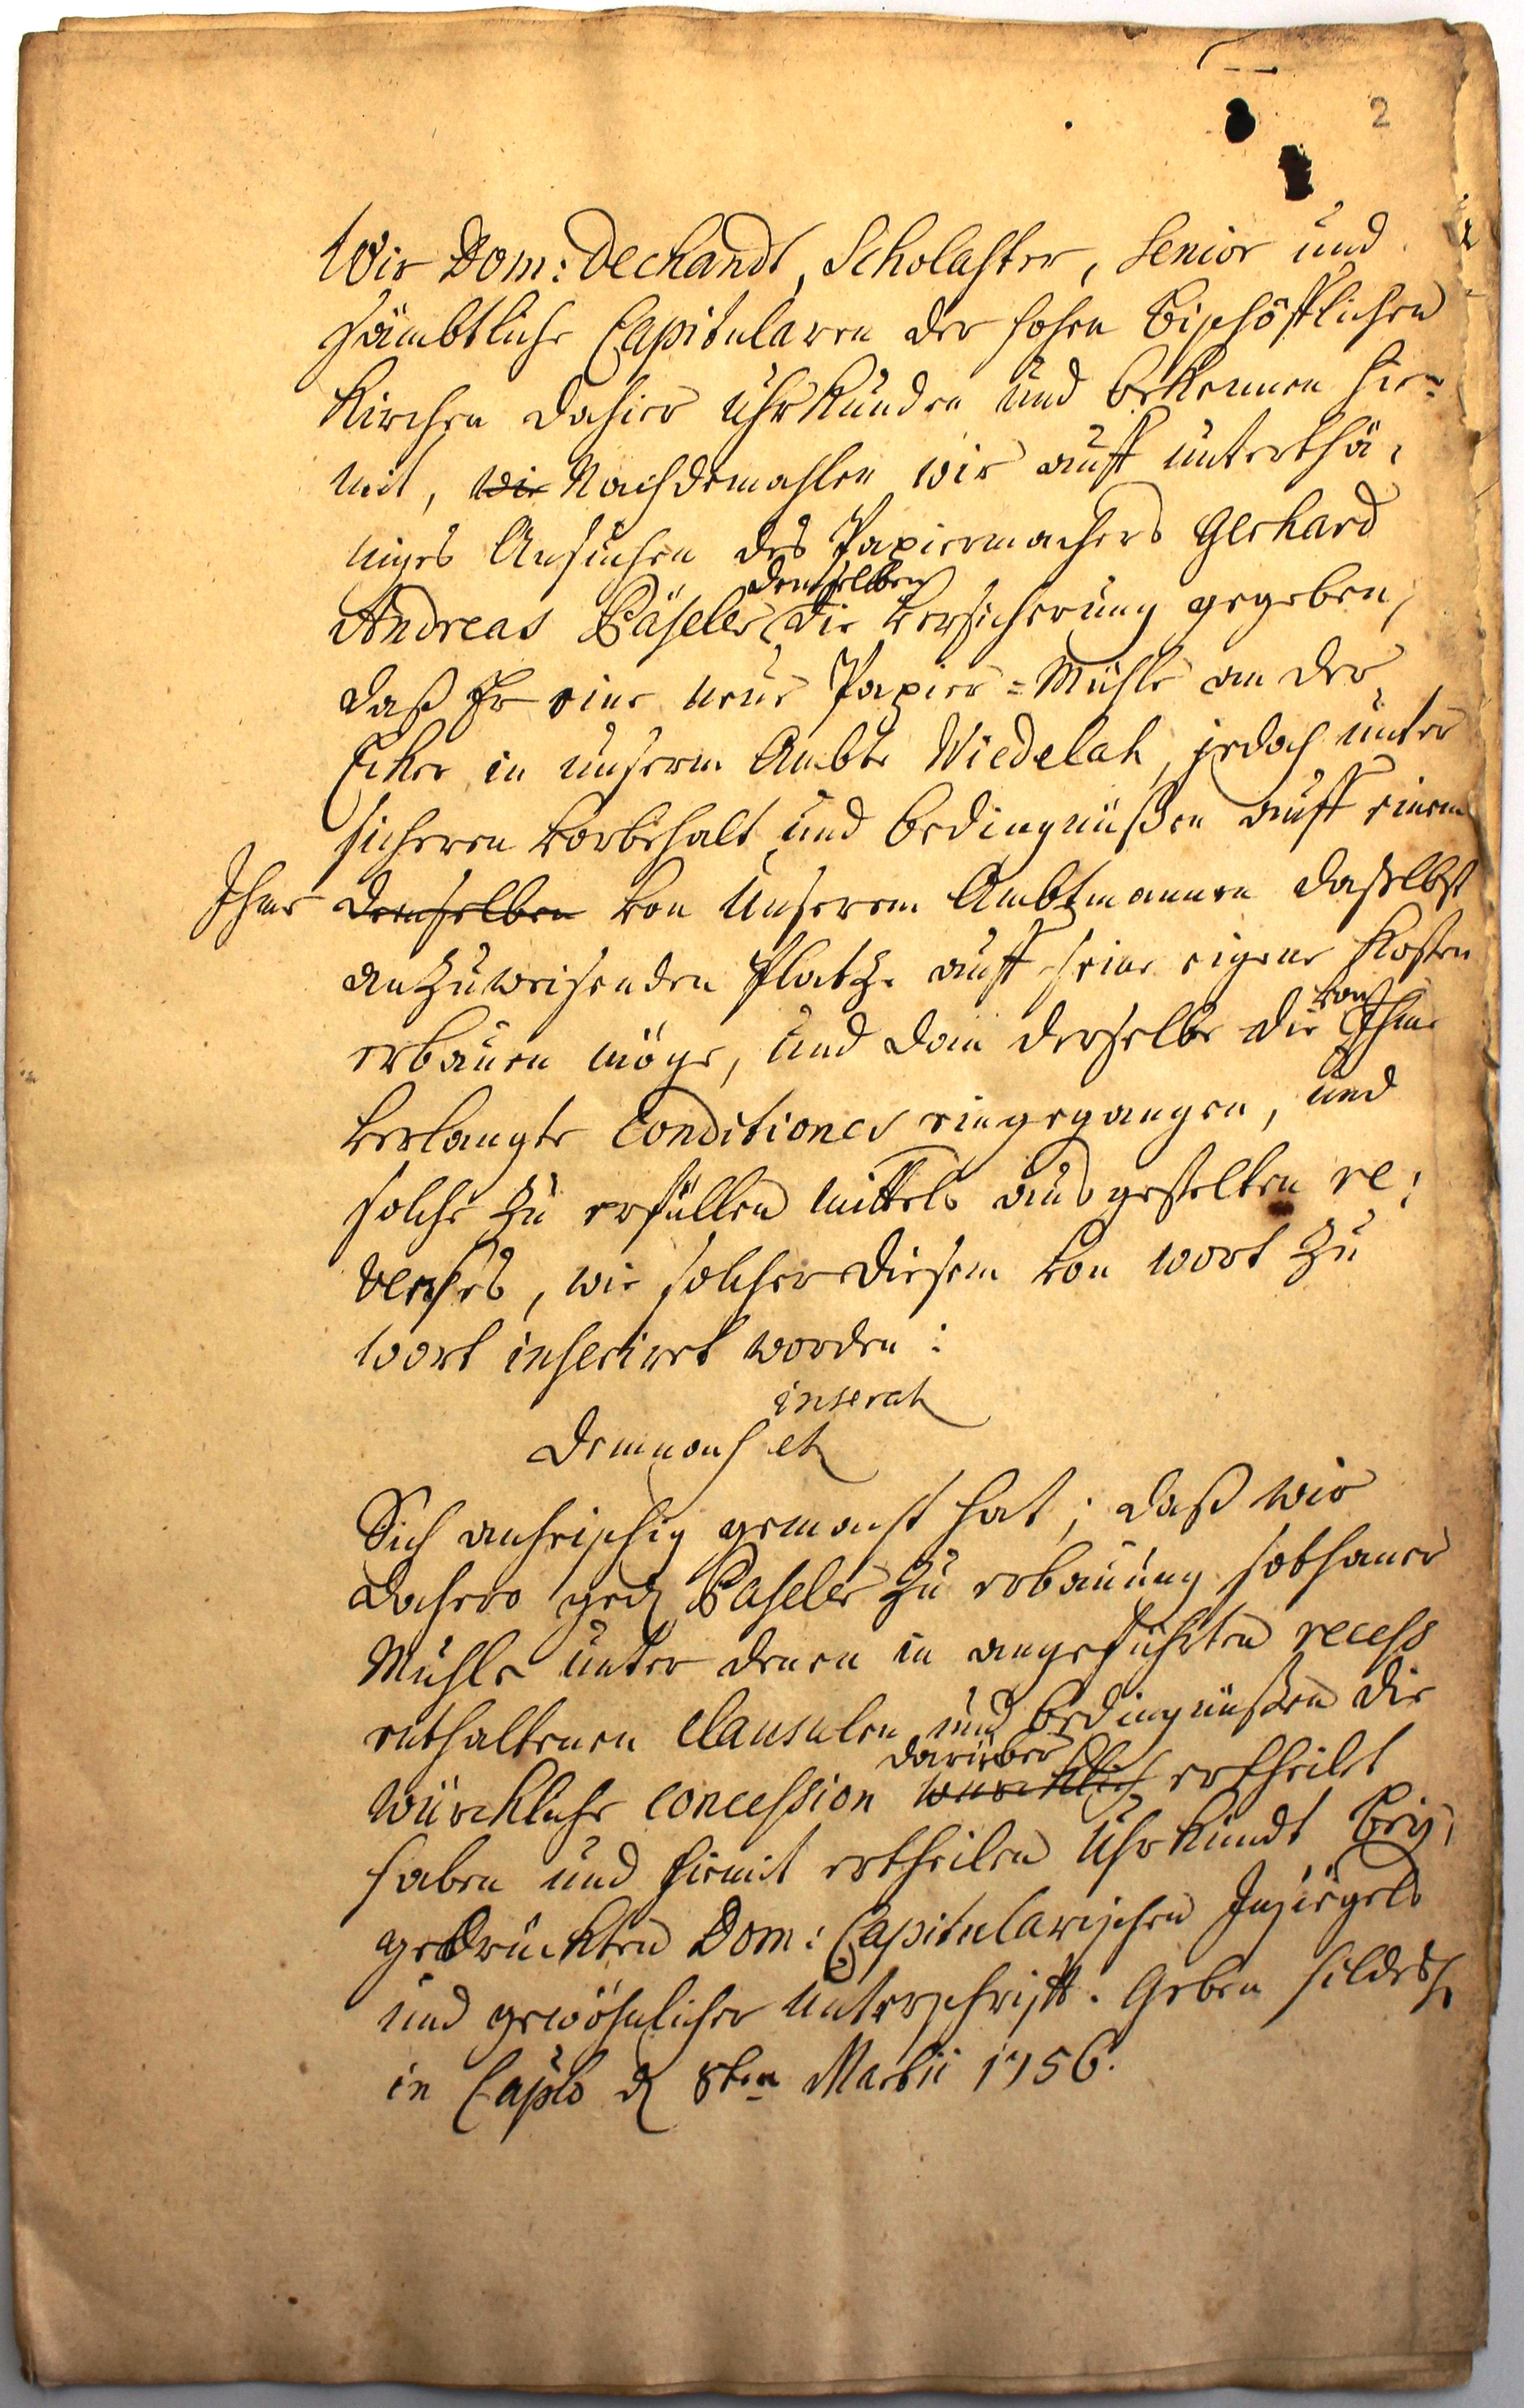 2
Wir Dom: Dechandt, Scholaster, Senior und
sämbtliche Capitularen der hohen Bischöfflichen
Kirchen dahier Uhrkunden und bekennen hie¬
mit, wie Nachdemahlen wir auff unterthä¬
niges Ansuchen des Papiermachers Gerhard
demselben
Andreas Päseler die Versicherung gegeben,
daß Er eine neue Papier=Mühle an der
Ecker in unserm Ambte Wiedelah, jedoch unter
sicheren Vorbehalt und bedingnüßen auff einem
Ihme demselben von Unserem Ambtmannen daselbst
anzuweisenden Platze auff seine eigene Kosten
von
erbauen möge, und dan derselbe die Ihme
verlangte Conditiones eingegangen, und
solche zu erfüllen mittels ausgestelten re¬
verses, wie solcher diesem von wort zu
wort inserirt worden:
inserat
Demnach et
Sich anheischig gemacht hat; daß wir
dahero ged. Paseler zu erbauung sothaner
Mühle unter denen in angeführten recess
enthaltenen Clausulen und bedingnüßen die
darüber
würckliche concession würcklich ertheilt
haben und hiemit ertheilen Uhrkundt bey¬
gedrückten Dom: Capitularischen Insiegels
und gewöhnlicher Unterschrift. Geben Hildesh.
in Caplo d. 8ten Martii 1756.